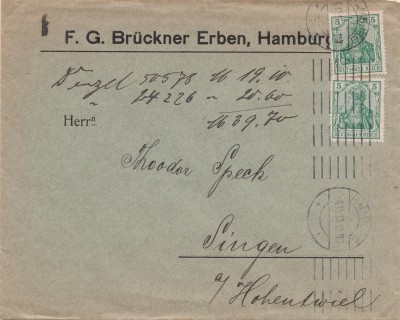 F. G. Brückner Erben, Hamburg
50578 M 19.10
" 24226 " 20.60
M 39.70
Herrn
Theodor Speck
Singen
a/Hohentwiel
5 5
DEUTSCHES REICH
5 5
DEUTSCHES REICH